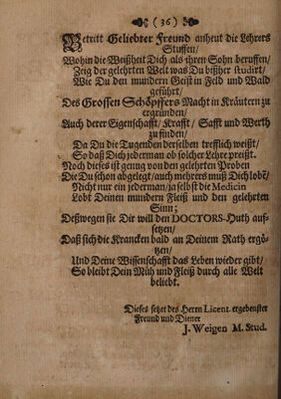 (36)
Betritt Geliebter Freund anheut die Lehrers
Stuffen/
Wohin die Weißheit Dich als ihren Sohn beruffen/
Zeig der gelehrten Welt was Du bißher studirt/
Wie Du den mundern Geist in Feld und Wald
geführt/
Des Grossen Schöpffers Macht in Kräutern zu
ergründen/
Auch derer Eigenschafft/ Krafft/ Safft und Werth
zu finden/
Da Du die Tugenden derselben trefflich weißt/
So daß Dich jederman ob solcher Lehre preißt.
Noch dieses ist genug von den gelehrten Proben
Die Du schon abgelegt/ auch mehrers muß Dich lobē/
Nicht nur ein jederman/ ja selbst die Medicin
Lobt Deinen mundern Fleiß und den gelehrten
Sinn;
Deßwegen sie Dir will den DOCTORS-Huth auf-
setzen/
Daß sich die Krancken bald an Deinem Rath ergö-
tzen/
Und Deine Wissenschafft das Leben wieder gibt/
So bleibt Dein Müh und Fleiß durch alle Welt
beliebt.
Dieses setzet des Herrn Licent. ergebenster
Freund und Diener
J. Weigen M. Stud.